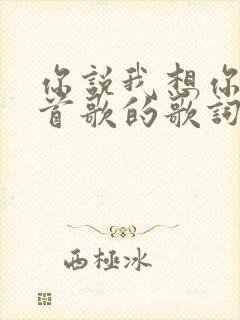 你說我想你
首歌的歌詞
西極冰